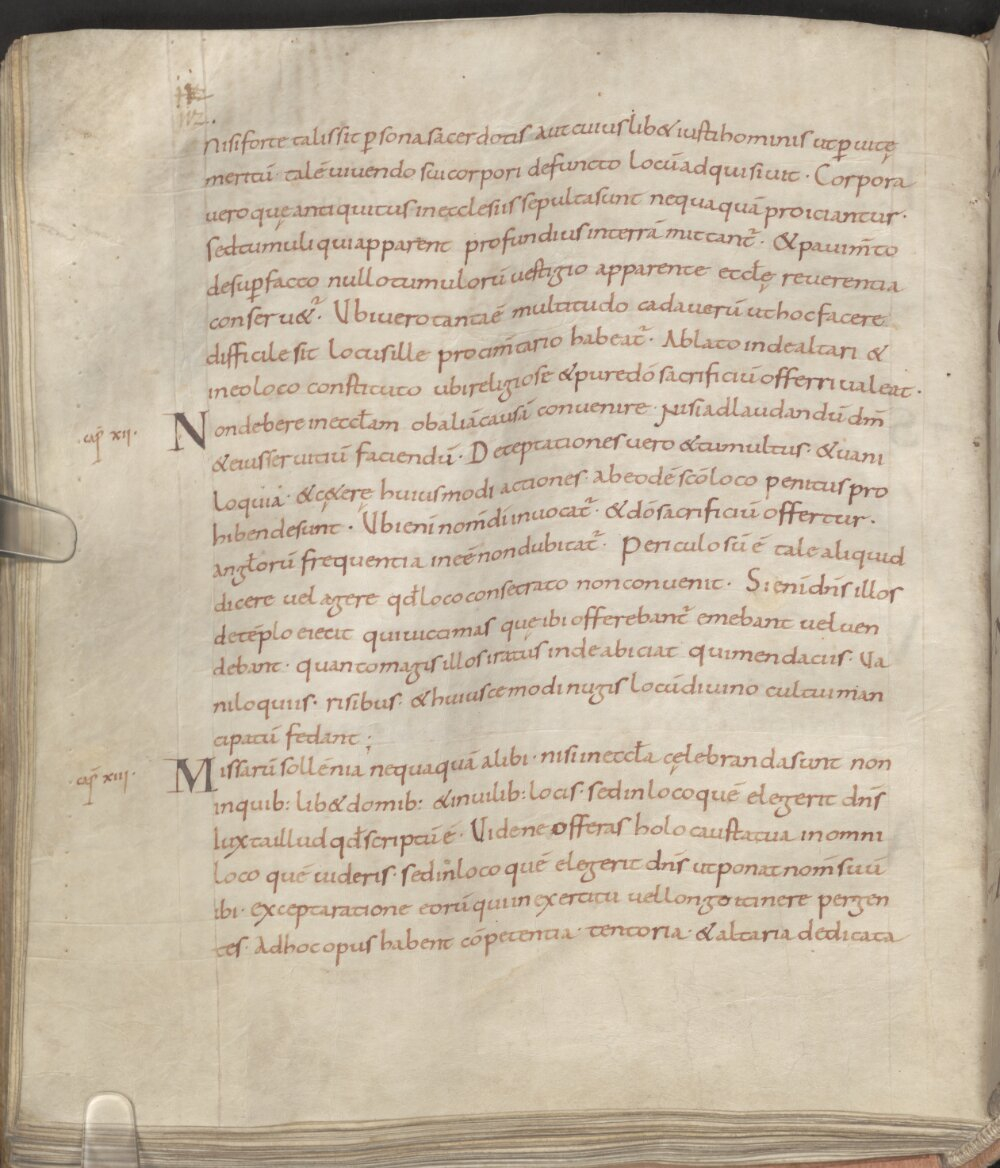 112.
Nisi forte talis sit p̄sona sacerdotis aut cuiuslib& iusti hominis ut p̄ uitę
meritū talē uiuendo sui corpori defuncto locū adquisiuit· Corpora
uero quę antiquitus in ecclesiis sepulta sunt nequaquā proiciantur·
sed tumuli qui apparent profundius in terrā mittant̄· & pauim̄to
desup̄ facto nullo tumulorū uestigio apparente eccl̄ę reuerentia
conseru&̄· Ubi uero tanta ē multitudo cadauerū ut hoc facere
difficile sit locus ille pro cim̄tario habeat̄· Ablato inde altari &
in eo loco constituto ubi religiose & pure dō sacrificiū offerri ualeat·
·cap̄ xii· Non debere in eccl̄am ob aliā causā conuenire· Nisi ad laudandū dm̄
& eius seruitiū faciendū· Deceptationes uero & tumultus· & uani
loquia· & cę&erę huiusmodi actiones· ab eodē scō loco penitus pro
hibende sunt· Ubi enī nom̄ di inuocat̄· & dō sacrificiū offertur·
angl̄orū frequentia inēē non dubitat̄· Periculosū ē tale aliquid
dicere uel agere qd̄ loco consecrato non conuenit· Si enī dn̄s illos
de tēplo eiecit qui uictimas quę ibi offerebant̄ emebant uel uen
debant· quanto magis illos iratus inde abiciat qui mendaciis· Ua
niloquiis· risibus· & huiuscemodi nugis locū diuino cultui man
cipatū fedant;
·cap̄ xiii· Missarū sollēnia nequaquā alibi· nisi in eccl̄a cęlebranda sunt non
in quib: lib& domib: & in uilib: locis· sed in loco quē elegerit dn̄s
Iuxta illud qd̄ scriptū ē· Uide ne offeras holocausta tua in omni
loco quē uideris· sed in loco quē elegerit dn̄s ut ponat nom̄ suū
ibi· excepta ratione eorū qui in exercitu uel longo itinere pergen
tes· Ad hoc opus habent cōpetentia tentoria· & altaria dedicata